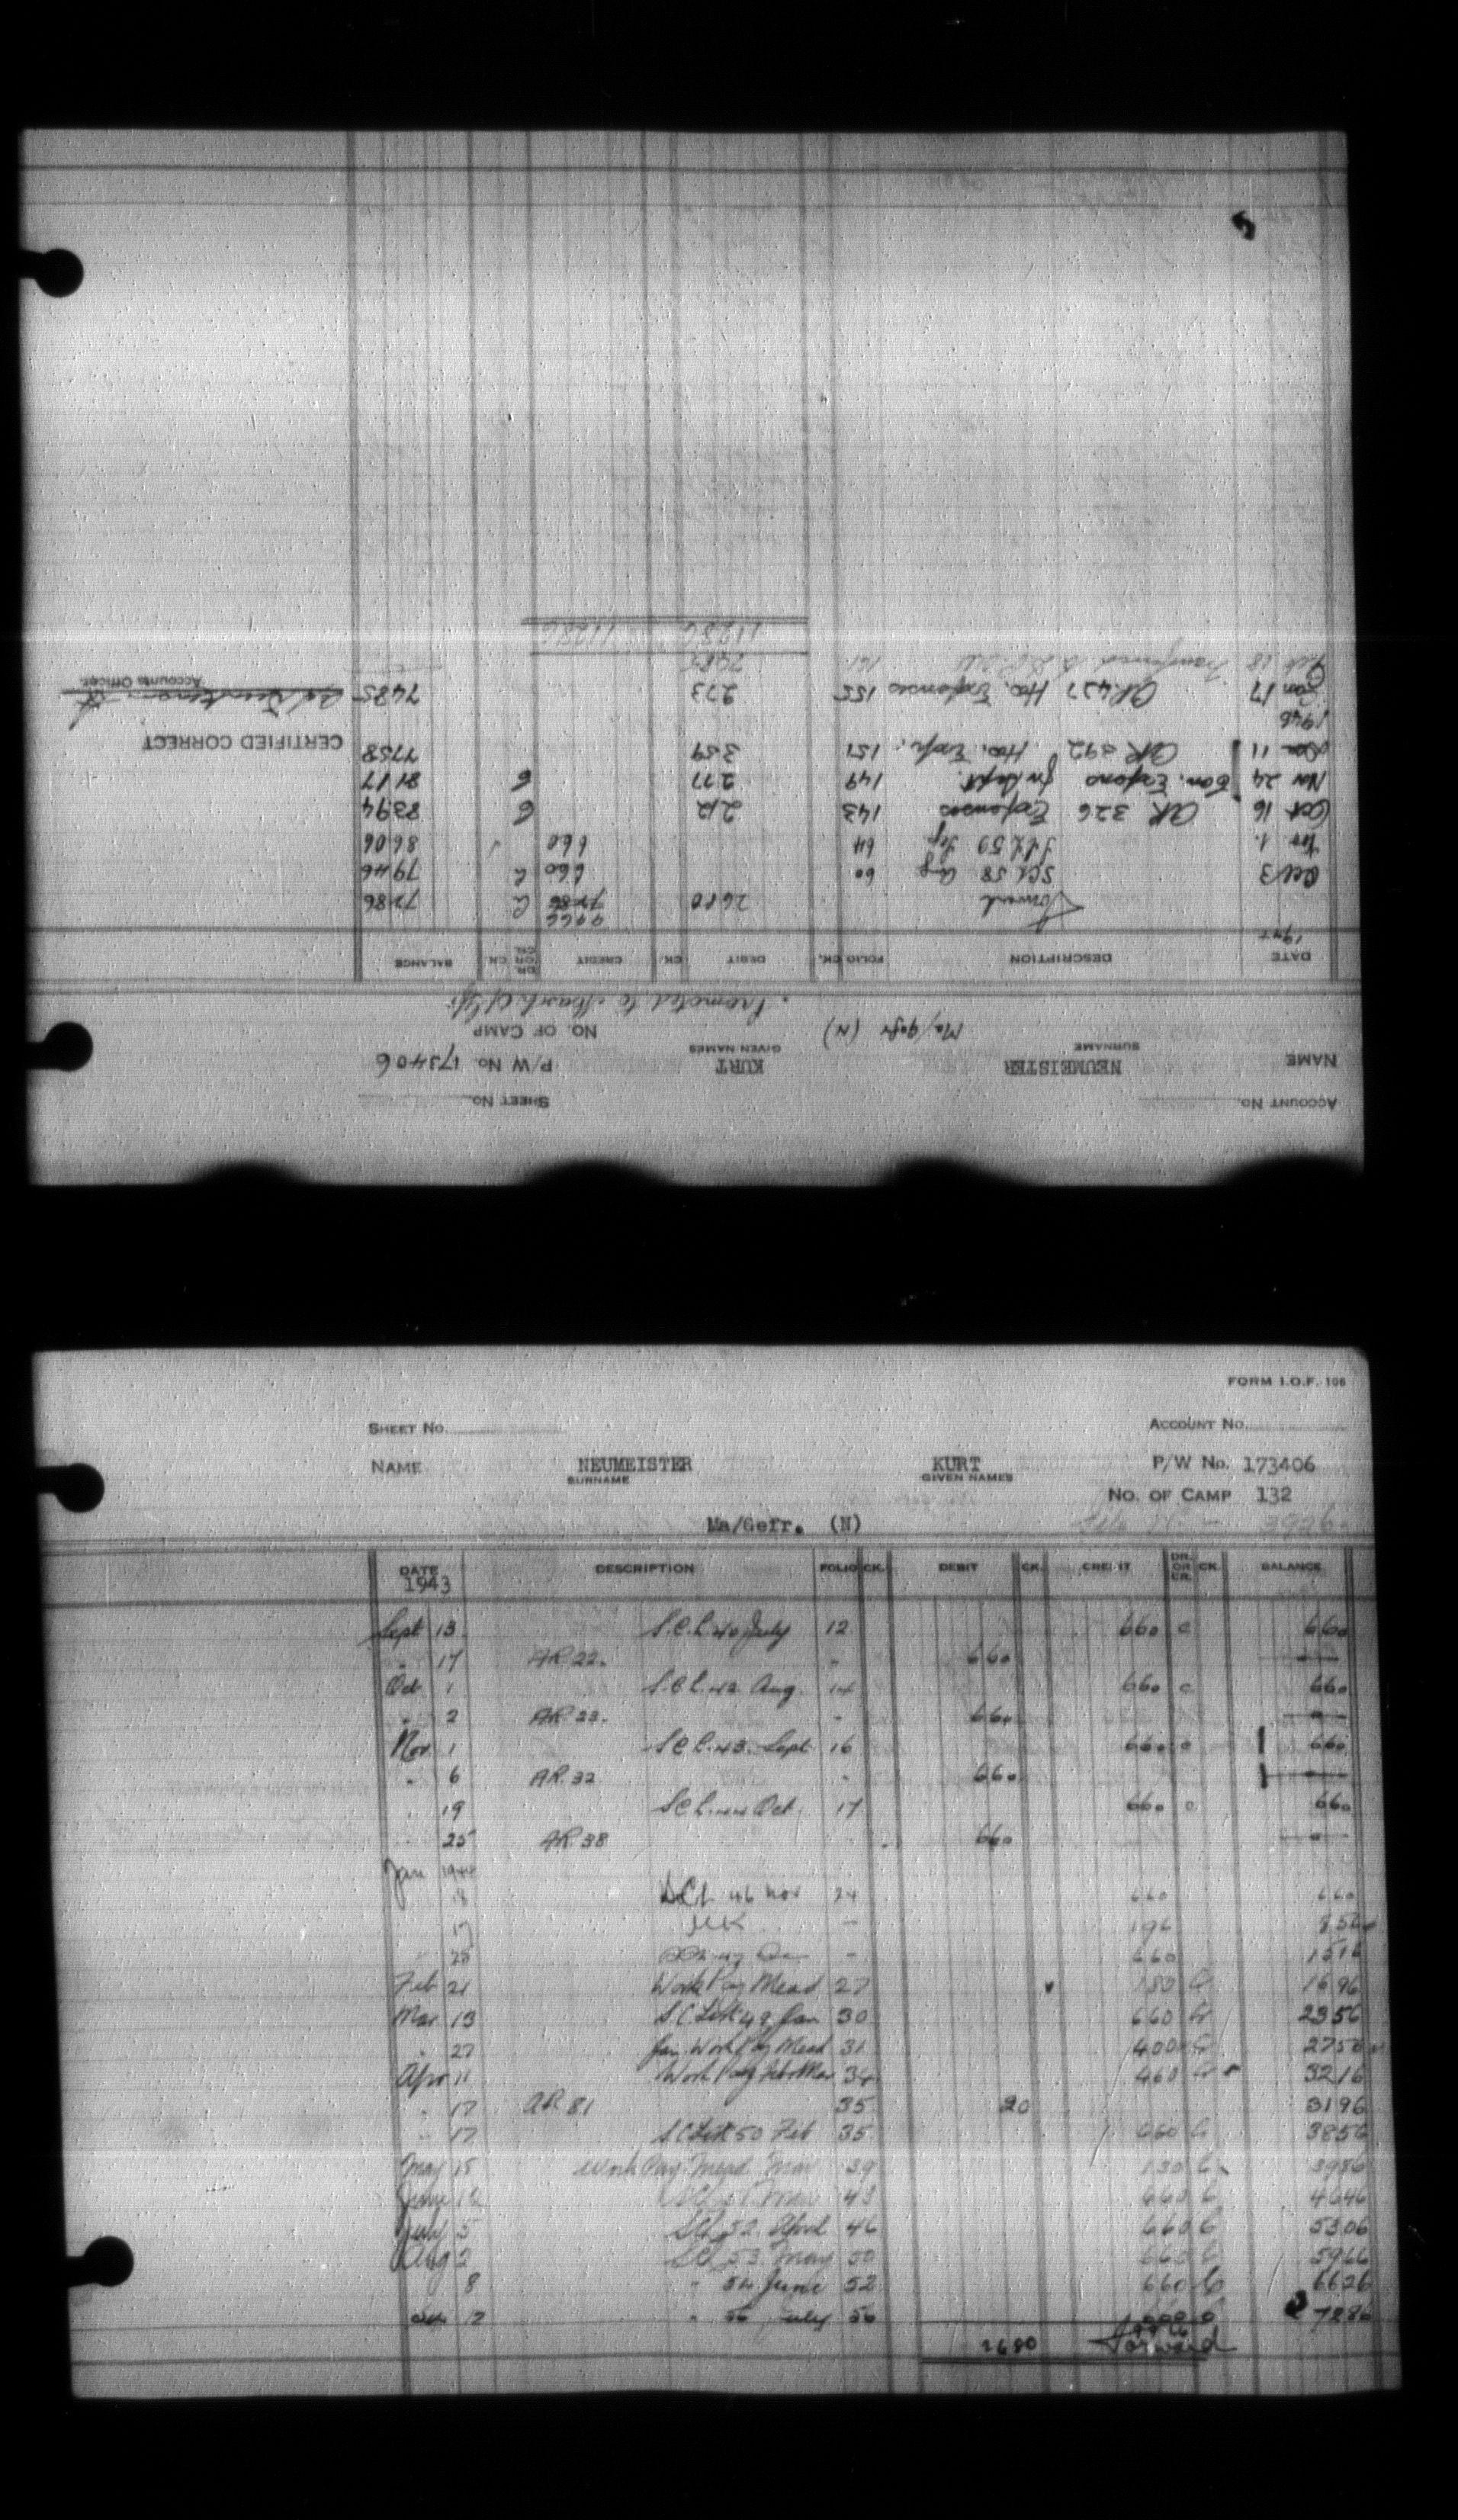 ACCOUNT No. SHEET No.
NAME NEUMEISTER KURT P/W No. 173406
SURNAME GIVEN NAMES
Ma/Gefr (N) NO. OF CAMP
Promoted to
DATE DESCRIPTION FOLIO CK. DEBIT CK. CREDIT DR. OR CR. CK. BALANCE
Forward 2680 9966 7286 7286
Oct 3 SCL 58 Aug 60 660 7946
Nov 1. 59 Sep 64 660 8606
Oct 16 AR 326 Expenses 143 212 8394
Nov 24 Can. Expens for Sept. 149 277 8117
11 AR 392 Hos. Exp. 151 359 7758
CERTIFIED CORRECT
1946
Jan 17 AR 437 Hos. Expenses 155 273 7485
Accounts Officer.
Feb 28 Transferred to 161 7485
11286 11286
FORM I.O.F. 106
SHEET No. ACCOUNT No.
NAME NEUMEISTER KURT P/W No. 173406
SURNAME GIVEN NAMES
NO. OF CAMP 132
Ma/Gefr. (N)
DATE DESCRIPTION FOLIO CK. DEBIT CK. CREDIT DR. OR CR. CK. BALANCE
1943
Sept 13 S.C.L. 40 July 12 660 c 660
" 17 AR 22. " 660
Oct 1 S.C.L. 42 Aug. 14 660 c 660
" 2 AR 23. " 660
Nov 1 S.C.L. 43. Sept 16 660 c 660
" 6 AR 32 " 660
" 19 SCL 44 Oct. 17 660 c 660
" 25 AR 38 660
Jan 1944
SCL 46 Nov 24 660 660
17 196 856
" 25 660 1516
Feb 21 Work Pay Mead 27 180 C 1696
Mar 13 S.C. List 49 Jan 30 660 Cr 2356
" 27 Jan Work Pay Mead 31 400 Cr 2756
Apr 11 Work Pay Feb Mar 34 460 Cr 3216
" 17 AR 81 35 20 3196
" 17 SC List 50 Feb 35 660 C 3856
May 15 Work Pay Mead Mar 39 130 C 3986
June SCL 51 Mar 43 660 C 4646
July 5 SCL 52 April 46 660 C 5306
Aug 2 SCL 53 May 50 660 C 5966
8 " 54 June 52 660 C 6626
" 56 July 56 660 C 7286
2680 9966 Forward